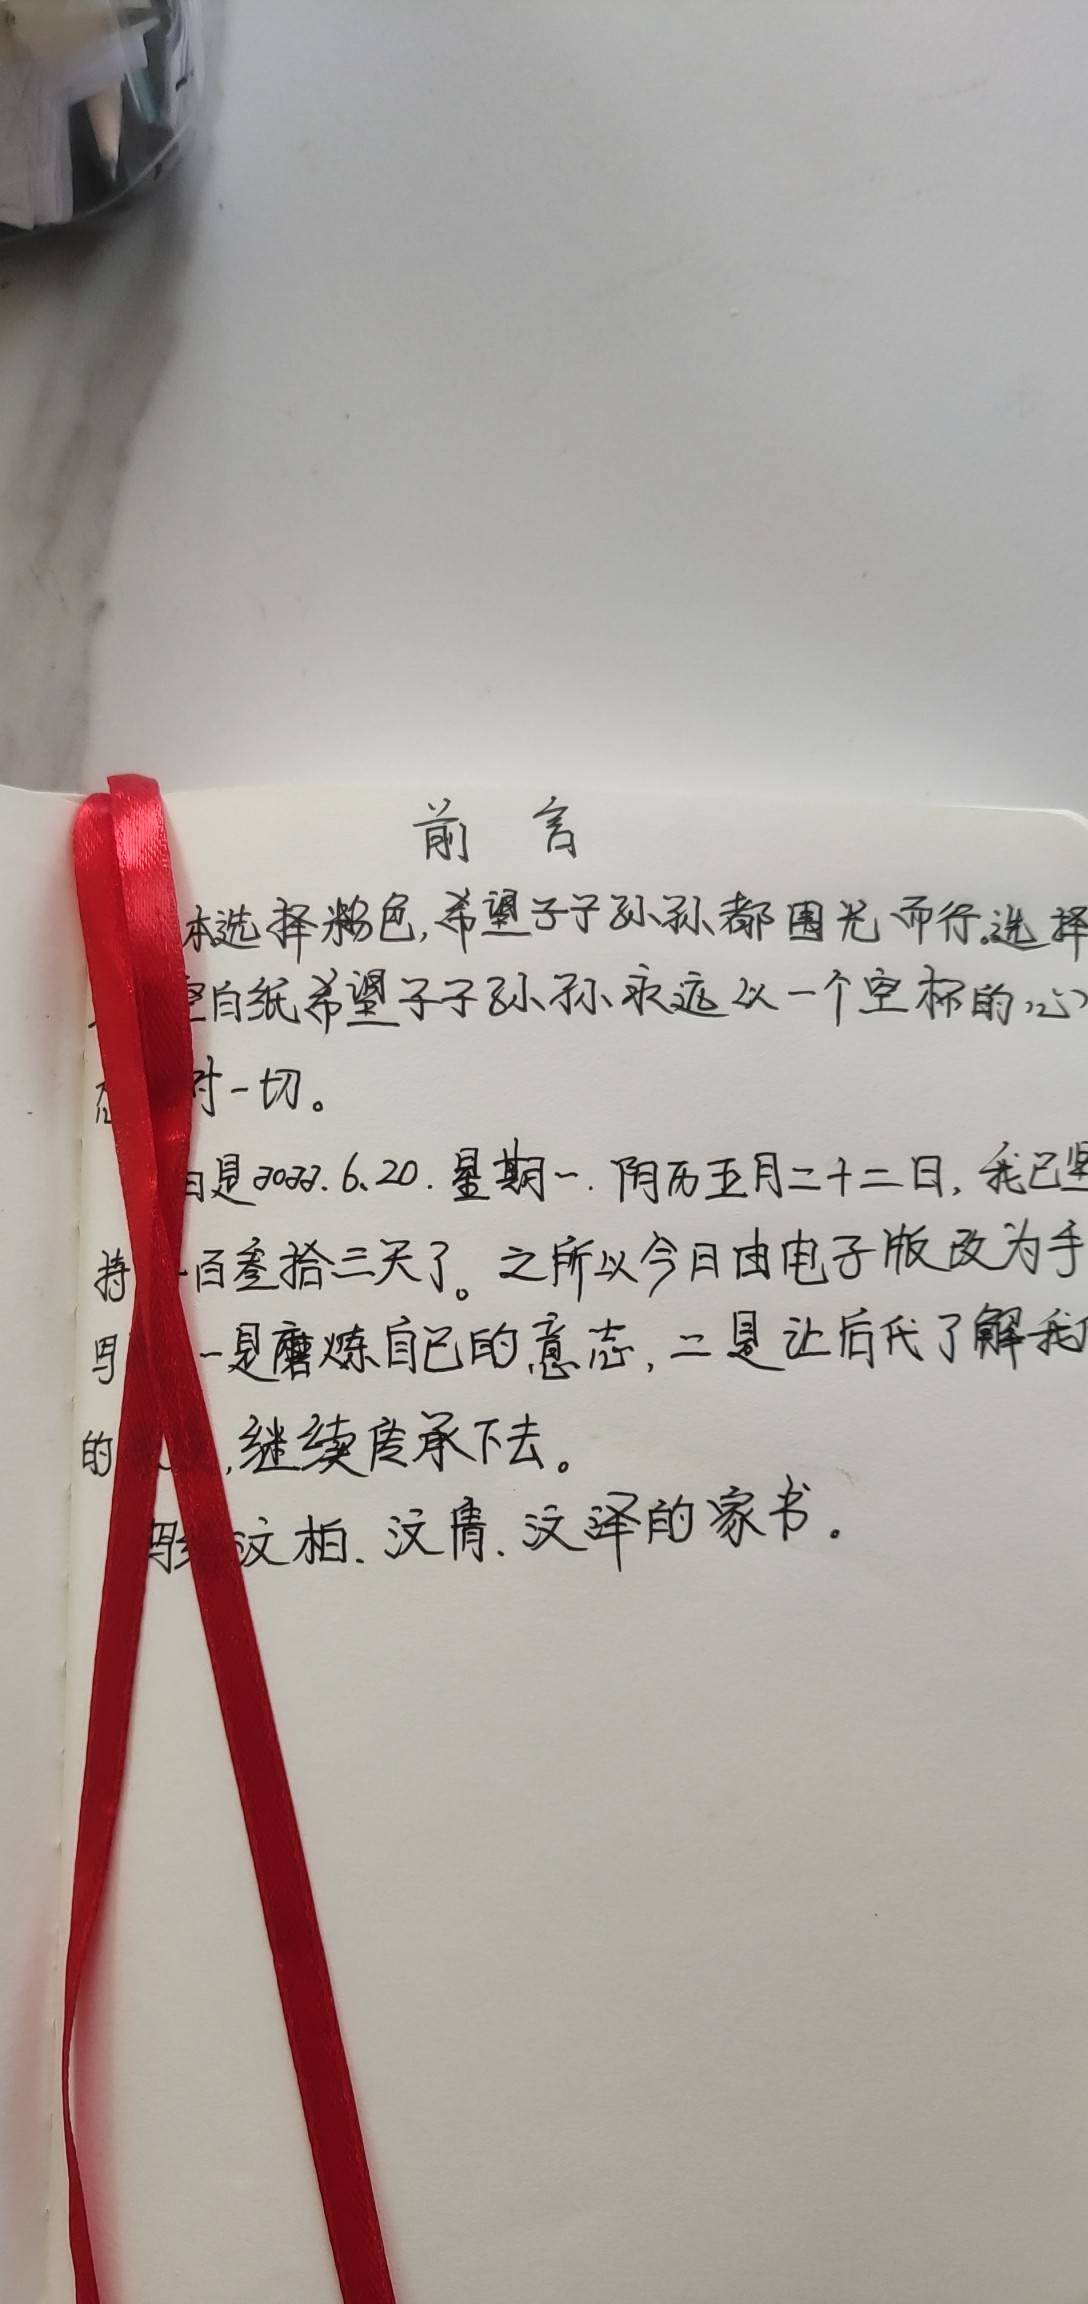 前 言
本选择粉色,希望子子孙孙都围光而行。选择
空白纸希望子子孙孙永远以一个空杯的心
对一切。
日是2022.6.20.星期一.阴历五月二十二日,我已坚
持一百叁拾三天了。之所以今日由电子版改为手
写 一是磨炼自己的意志,二是让后代了解我们
的 ,继续传承下去。
写给汶柏.汶倩.汶泽的家书。